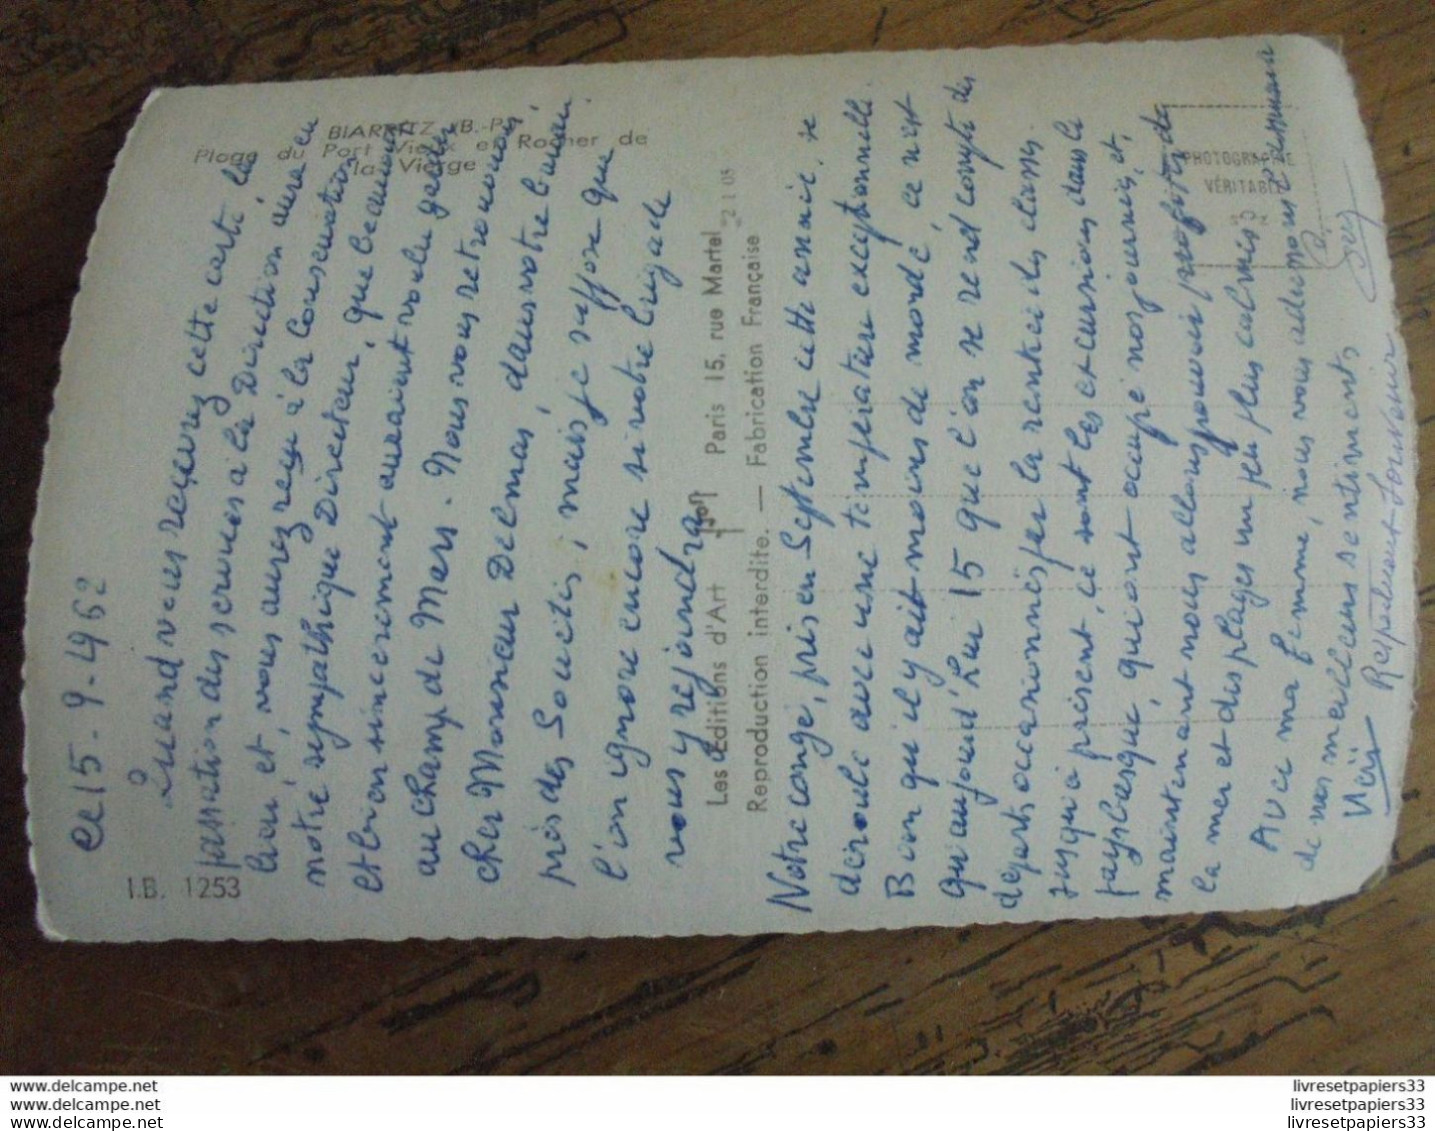 ce 15-9-1962
Quand vous recevrez cette carte, la
passation des services à la Direction aura eu
lieu et, vous aurez reçu à la Conservation
notre sympathique Directeur, que beaucoup
et bien sincerement auraient voulu garder
au Champ de Mars. Nous nous retrouvons,
cher Monsieur Delmas, dans notre bureau
près des Soucis, mais je suppose que
l'on ignore encore si notre brigade
vous y rejoindra
Notre congé, pris en Septembre cette année, se
deroule avec une température exceptionnelle.
Bien qu'il y ait moins de monde, ce n'est
qu'aujourd'hui 15 que l'on se rend compte des
departs occasionnés par la rentrée des classes.
Jusqu'à présent, ce sont les excursions dans le
pays basque, qui ont occupé nos journées, et,
maintenant nous allons pouvoir profiter de
la mer et des plages un peu plus calmes.
Avec ma femme, nous vous adressons
de nos meilleurs sentiments
I.B. 1253
BIARRITZ (B.-P.)
Plage du Port Vieux et Rocher de
la Vierge
Les Editions d'Art yvon Paris 15, rue Martel
Reproduction interdite. — Fabrication Française
PHOTOGRAPHIE
VÉRITABLE
www.delcampe.net
www.delcampe.net
www.delcampe.net
livresetpapiers33
livresetpapiers33
livresetpapiers33